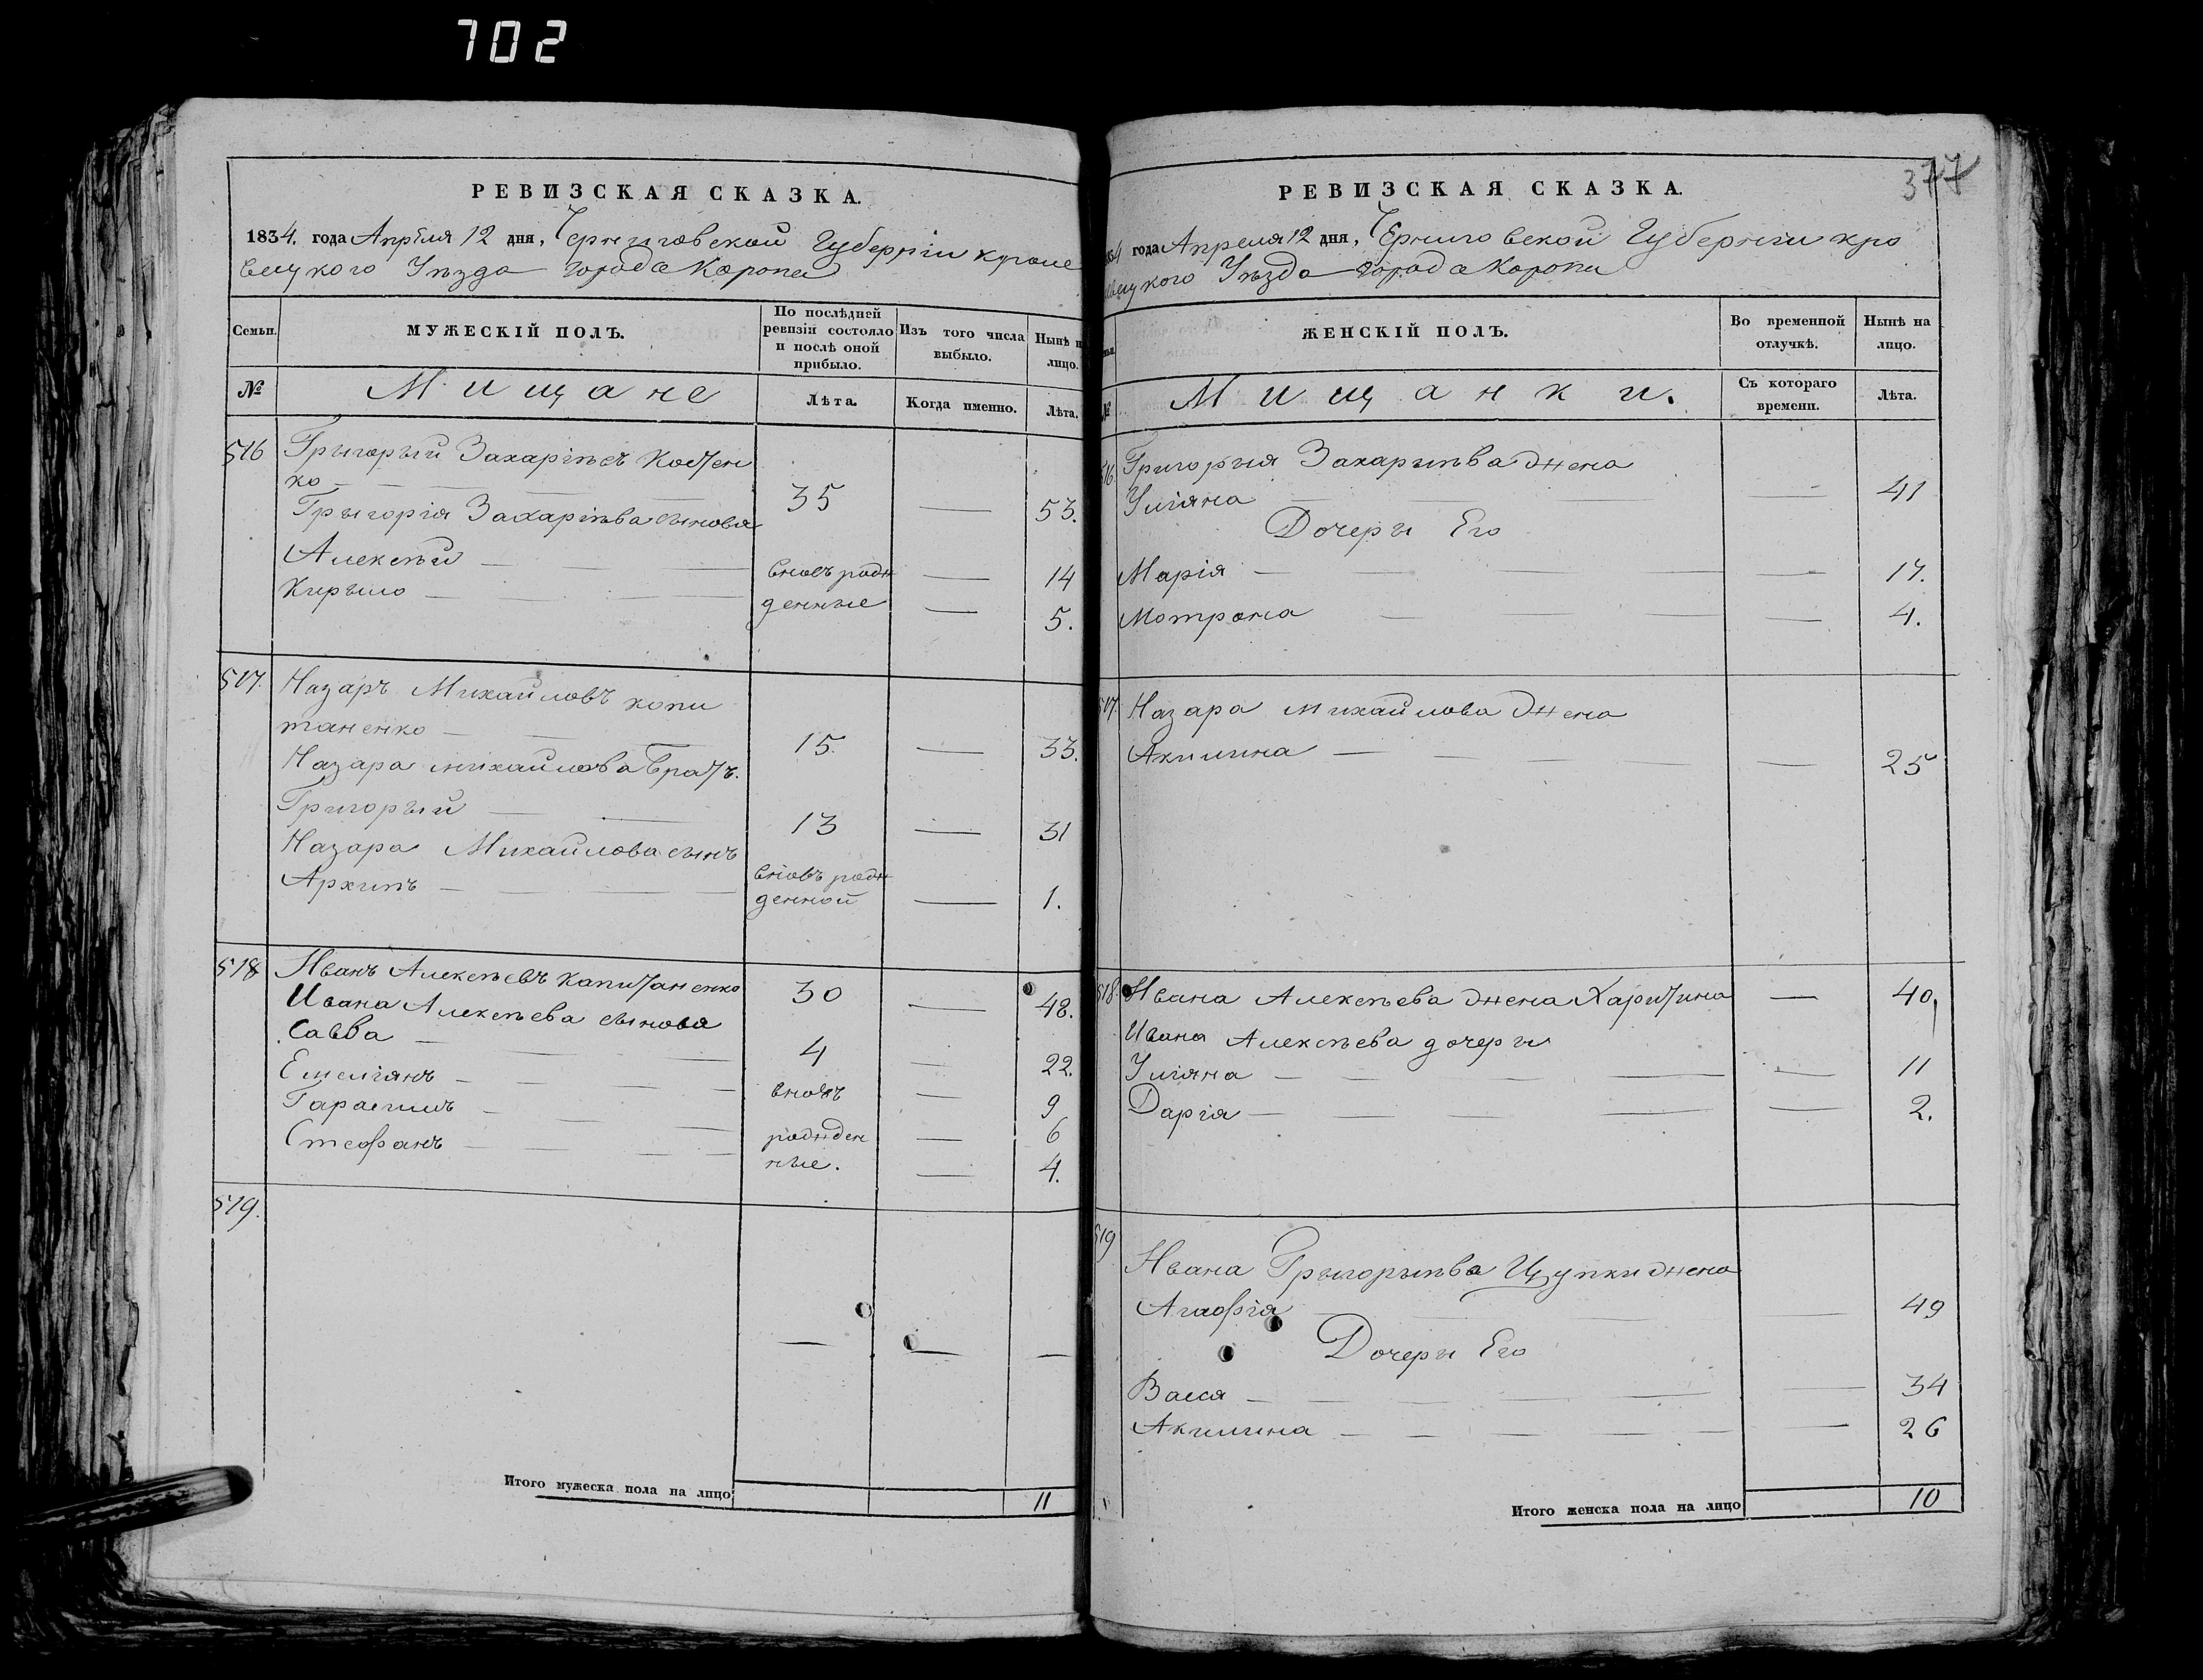 702
РЕВИЗСКАЯ СКАЗКА.
1834. года Апреля 12 дня, Черниговской Губерніи кроле
вецкого Уезда города Коропа
Семьи.
МУЖЕСКІЙ ПОЛЪ.
По послѣдней ревизіи состояло и послѣ оной прибыло.
Изъ того числа выбыло.
Нынѣ на лицо.
№
Мищане
Лѣта.
Когда именно.
Лѣта.
516 Грыгорый Захаріевъ Костен
ко 35 — 53.
Грыгорія Захаріева сынова
Алексѣй вновъ рож — 14
Кирыло денные — 5.
517. Назаръ Михайловъ копи
таненко 15. — 33.
Назара михайлова братъ.
Григорый 13 — 31
Назара Михайлова сынъ
Архипъ вновъ рож
денной — 1.
518 Иванъ Алексѣевъ капитаненко 30 — 48.
Ивана Алексѣева сынова
Савва 4 — 22.
Емеліянъ вновъ — 9
Гарасимъ рожден — 6
Стефанъ ные. — 4.
519. — — —
Итого мужеска пола на лицо 11
377
РЕВИЗСКАЯ СКАЗКА.
года Апреля 12 дня, Черниговской Губерніи кро
вецкого Уезда города Коропа
ЖЕНСКІЙ ПОЛЪ.
Во временной отлучкѣ.
Нынѣ на лицо.
№
Мищанки.
Съ котораго времени.
Лѣта.
Григорыя Захарыева жена
Уліяна — 41
Дочеры Его
Марія — 17.
Мотрона — 4.
Назара михайлова жена
Акилина — 25
518. Ивана Алексѣева жена Харитина — 40.
Ивана Алексѣева дочеры
Уліяна — 11
Дарія — 2.
519 Ивана Грыгорыева Цупки жена
Агафія — 49
Дочеры Его
Васса — 34
Акилина — 26
Итого женска пола на лицо 10